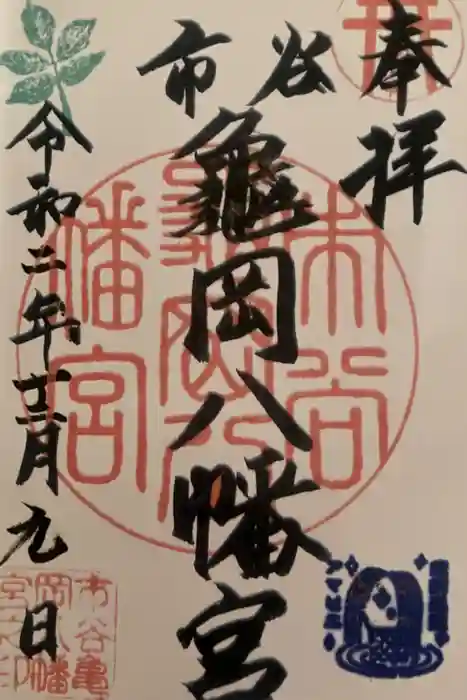 奉拝
市谷
龜岡八幡宮
令和二年十二月九日
市谷
亀岡八
幡宮
市谷亀
岡八幡
宮之印